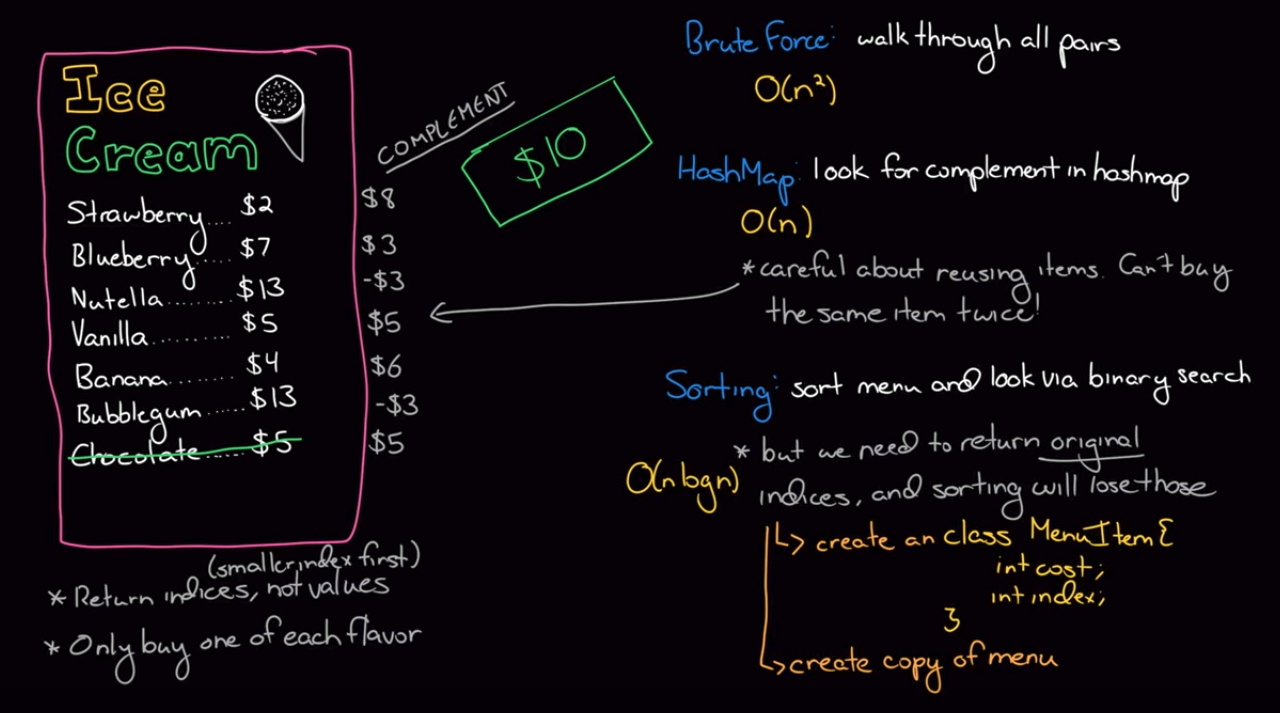 Ice
Cream
Strawberry.... $2
Blueberry..... $7
Nutella........ $13
Vanilla.......... $5
Banana........ $4
Bubblegum...... $13
Chocolate...... $5
COMPLEMENT
$8
$3
-$3
$5
$6
-$3
$5
$10
(smaller index first)
* Return indices, not values
* Only buy one of each flavor
Brute Force: walk through all pairs
O(n²)
HashMap: look for complement in hashmap
O(n)
* careful about reusing items. Can't buy
the same item twice!
Sorting: sort menu and look via binary search
* but we need to return original
O(n log n)
indices, and sorting will lose those
↳ create an class MenuItem {
int cost;
int index;
}
↳ create copy of menu